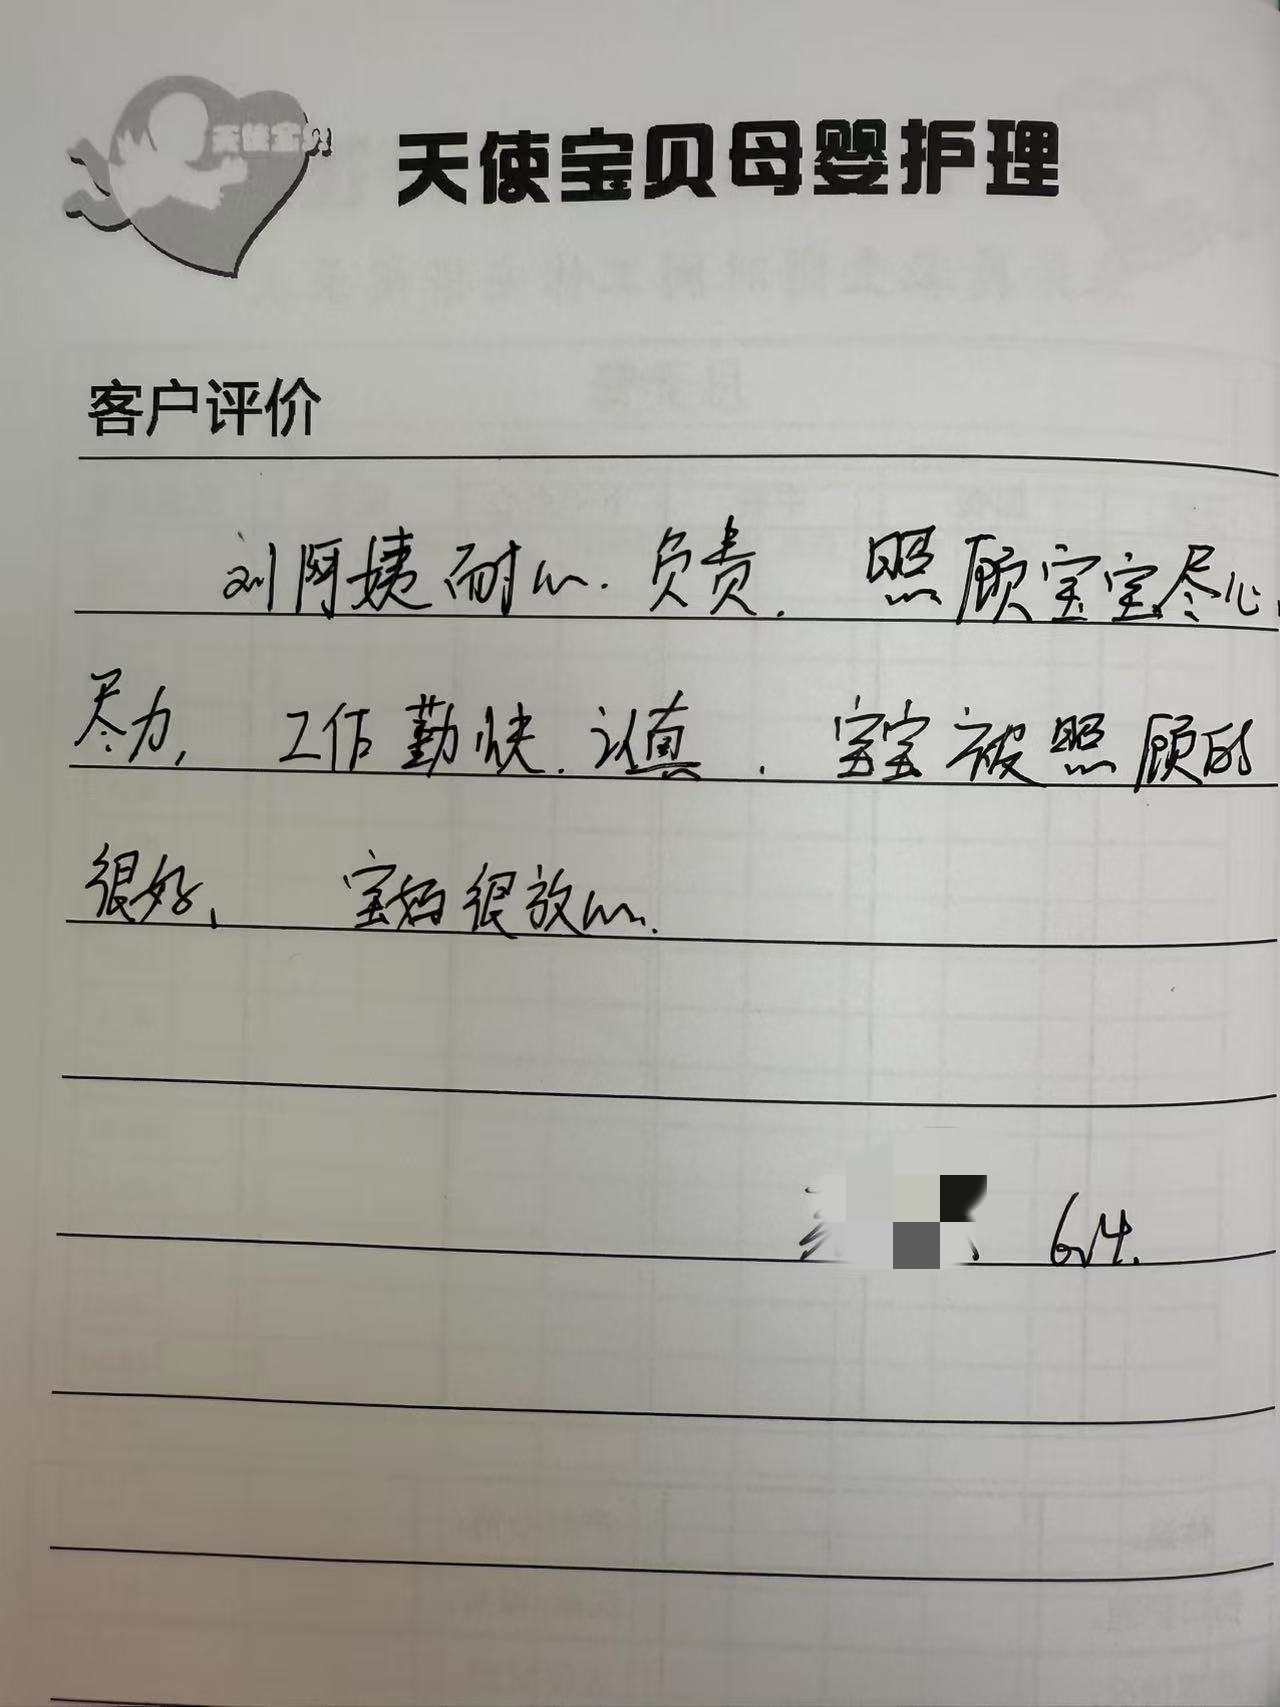 天使宝贝
天使宝贝母婴护理
客户评价
刘阿姨耐心.负责. 照顾宝宝尽心、
尽力, 工作勤快.认真. 宝宝被照顾的
很好, 宝妈很放心.
6.14.